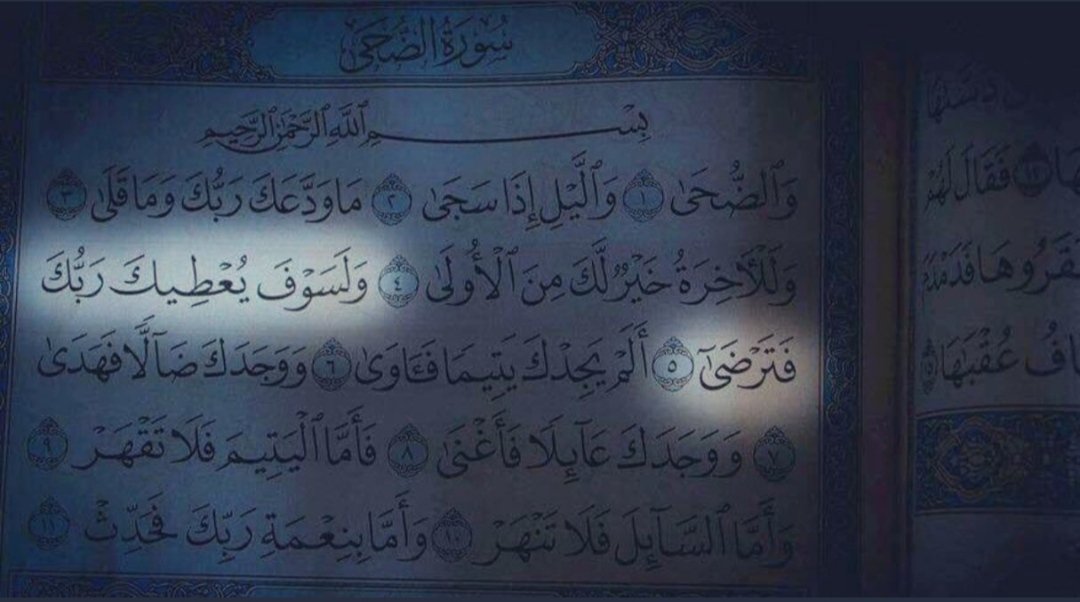 سُورَةُ الضُّحَىٰ
بِسْمِ ٱللَّهِ ٱلرَّحْمَٰنِ ٱلرَّحِيمِ
وَٱلضُّحَىٰ ١ وَٱلَّيْلِ إِذَا سَجَىٰ ٢ مَا وَدَّعَكَ رَبُّكَ وَمَا قَلَىٰ ٣
وَلَلْأَخِرَةُ خَيْرٌ لَّكَ مِنَ ٱلْأُولَىٰ ٤ وَلَسَوْفَ يُعْطِيكَ رَبُّكَ
فَتَرْضَىٰٓ ٥ أَلَمْ يَجِدْكَ يَتِيمًا فَـَٔاوَىٰ ٦ وَوَجَدَكَ ضَآلًّا فَهَدَىٰ
٧ وَوَجَدَكَ عَآئِلًا فَأَغْنَىٰ ٨ فَأَمَّا ٱلْيَتِيمَ فَلَا تَقْهَرْ ٩
وَأَمَّا ٱلسَّآئِلَ فَلَا تَنْهَرْ ١٠ وَأَمَّا بِنِعْمَةِ رَبِّكَ فَحَدِّثْ ١١
فَقَالَ لَهُمْ
عُقْبَٰهَا ١٥